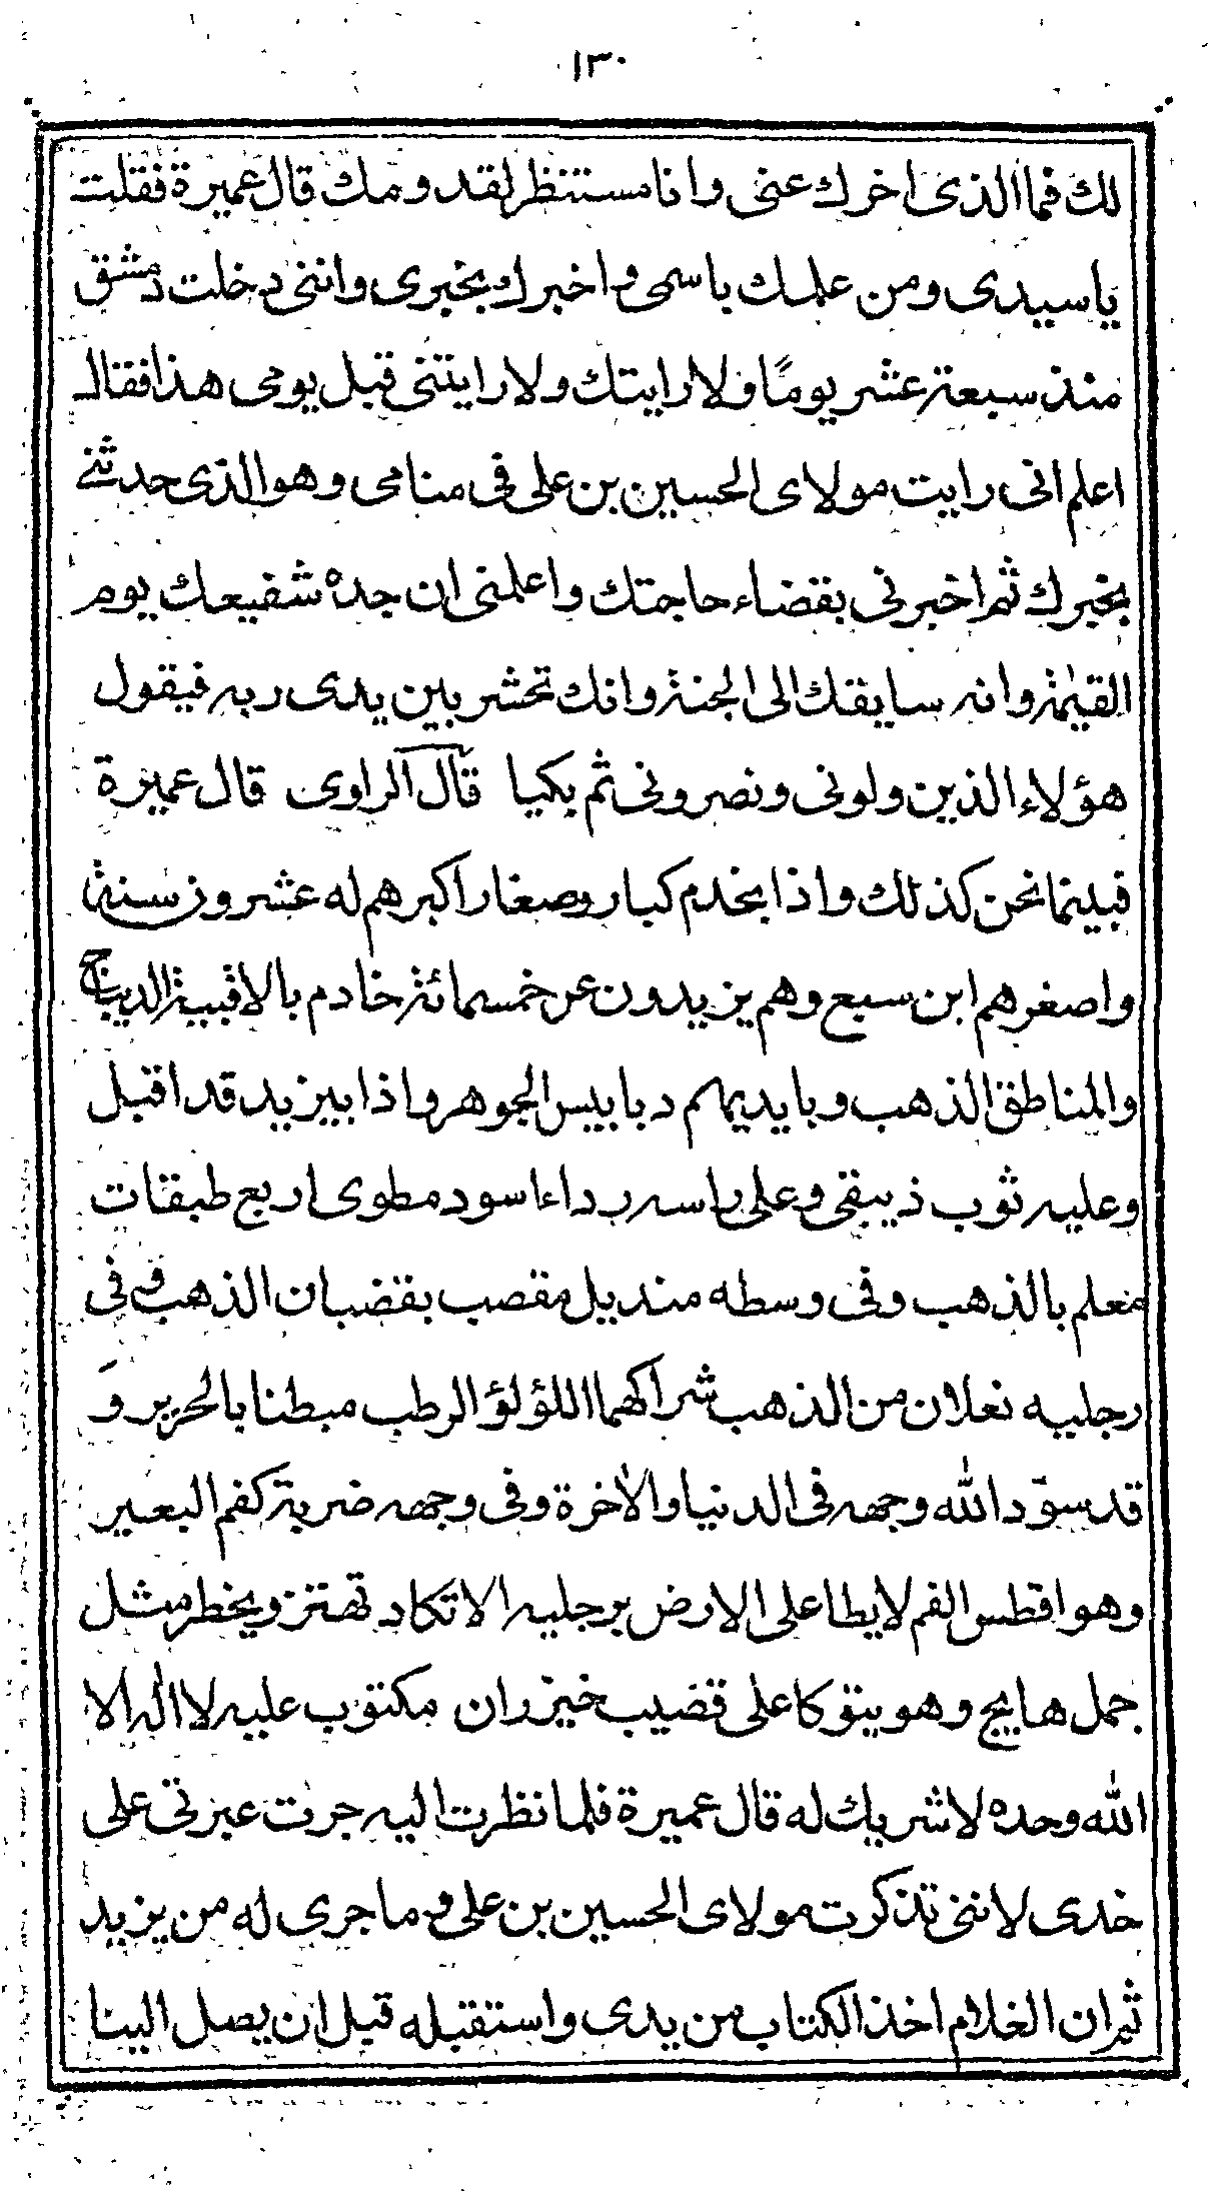 ١٣٠
لك فما الذى اخرك عنى وانا مستنظر لقدومك قال عميرة فقلت
ياسيدى ومن علمك باسمى واخبرك بخبرى واننى دخلت دمشق
منذ سبعة عشر يومًا ولا رايتك ولا رايتنى قبل يومى هذا فقال
اعلم انى رايت مولاى الحسين بن على فى منامى وهو الذى حدثنى
بخبرك ثم اخبرنى بقضاء حاجتك واعلمنى ان جده شفيعك يوم
القيٰمة وانه سايقك الى الجنة وانك تحشر بين يدى ربه فيقول
هؤلاء الذين ولونى ونصرونى ثم بكيا قال الراوى قال عميرة
فبينما نحن كذلك واذا بخدم كبار وصغار اكبرهم له عشرون سنة
واصغرهم ابن سبع وهم يزيدون عن خمسمائة خادم بالاقبية الديباج
والمناطق الذهب وبايديهم دبابيس الجوهر واذا بيزيد قد اقبل
وعليه ثوب ذيبقى وعلى راسه رداء اسود مطوى اربع طبقات
معلم بالذهب وفى وسطه منديل مقصب بقضبان الذهب وفى
رجليه نعلان من الذهب شراكهما اللؤلؤ الرطب مبطنا بالحرير وَ
قد سوّد الله وجهه فى الدنيا والاخرة وفى وجهه ضربة كفم البعير
وهو افطس الفم لايطا على الارض برجليه الا تكاد تهتز ويخطر مثل
جمل هايج وهو يتوكا على قضيب خيزران مكتوب عليه لا اله الا
الله وحده لاشريك له قال عميرة فلما نظرت اليه جرت عبرتى على
خدى لاننى تذكرت مولاى الحسين بن على وما جرى له من يزيد
ثم ان الغلام اخذ الكتاب من يدى واستقبله قبل ان يصل الينا